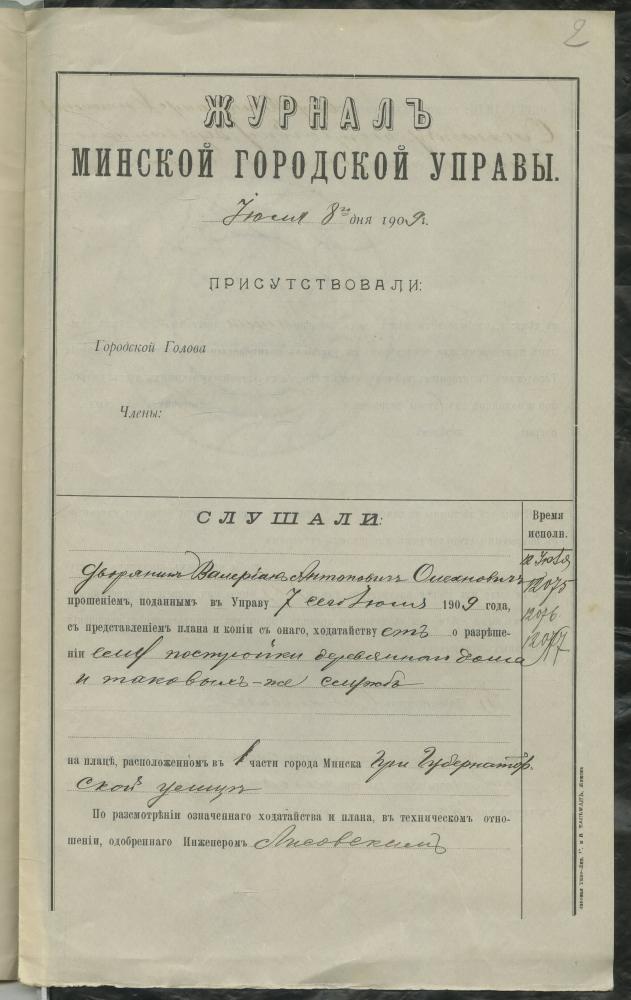 2
ЖУРНАЛЪ
МИНСКОЙ ГОРОДСКОЙ УПРАВЫ.
Іюля 8го дня 1909 г.
ПРИСУТСТВОВАЛИ:
Городской Голова
Члены:
СЛУШАЛИ:
Время
исполн.
12 Іюля
12075
12076
12077
Дворянинъ Валеріанъ Антоновичъ
прошеніемъ, поданнымъ въ Управу 7 сего Іюля 1909 года,
съ представленіемъ плана и копіи съ онаго, ходатайствуетъ о разрѣше-
ніи ему постройки деревяннаго дома
и таковыхъ-же службъ
на плацѣ, расположенномъ въ 1 части города Минска при Губернатор-
ской улицѣ
По разсмотрѣніи означеннаго ходатайства и плана, въ техническомъ отно-
шеніи, одобреннаго Инженеромъ